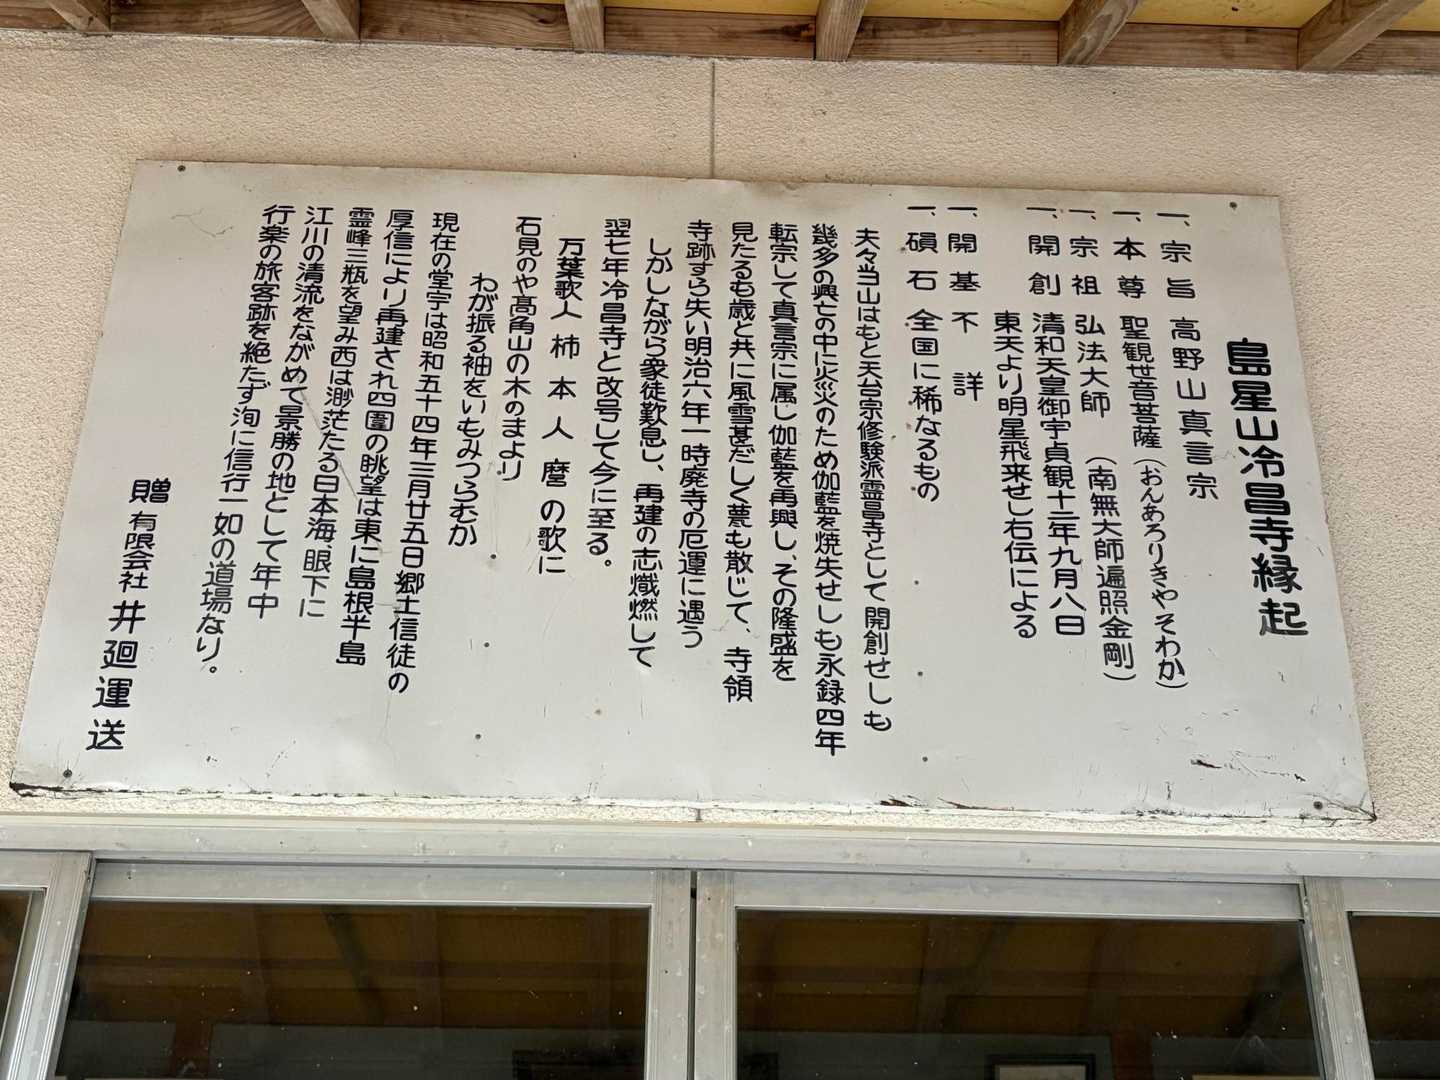 島星山冷昌寺縁起
一、宗旨 高野山真言宗
一、本尊 聖観世音菩薩(おんあろりきやそわか)
一、宗祖 弘法大師 (南無大師遍照金剛)
一、開創 清和天皇御宇貞観十二年九月八日
東天より明星飛来せし右伝による
一、開基 不詳
一、磒石 全国に稀なるもの
夫々当山はもと天台宗修験派霊昌寺として開創せしも
幾多の興亡の中に火災のため伽藍を焼失せしも永録四年
転宗して真言宗に属し伽藍を再興し、その隆盛を
見たるも歳と共に風雪甚だしく甍も散じて、寺領
寺跡すら失い明治六年一時廃寺の厄運に遇う
しかしながら衆徒歎息し、再建の志熾燃して
翌七年冷昌寺と改号して今に至る。
万葉歌人柿本人麿の歌に
石見のや高角山の木のまより
わが振る袖をいもみつらむか
現在の堂宇は昭和五十四年三月廿五日郷土信徒の
厚信により再建され四囲の眺望は東に島根半島
霊峰三瓶を望み西は渺茫たる日本海、眼下に
江川の清流をながめて景勝の地として年中
行楽の旅客跡を絶たず洵に信行一如の道場なり。
贈 有限会社 井廻運送